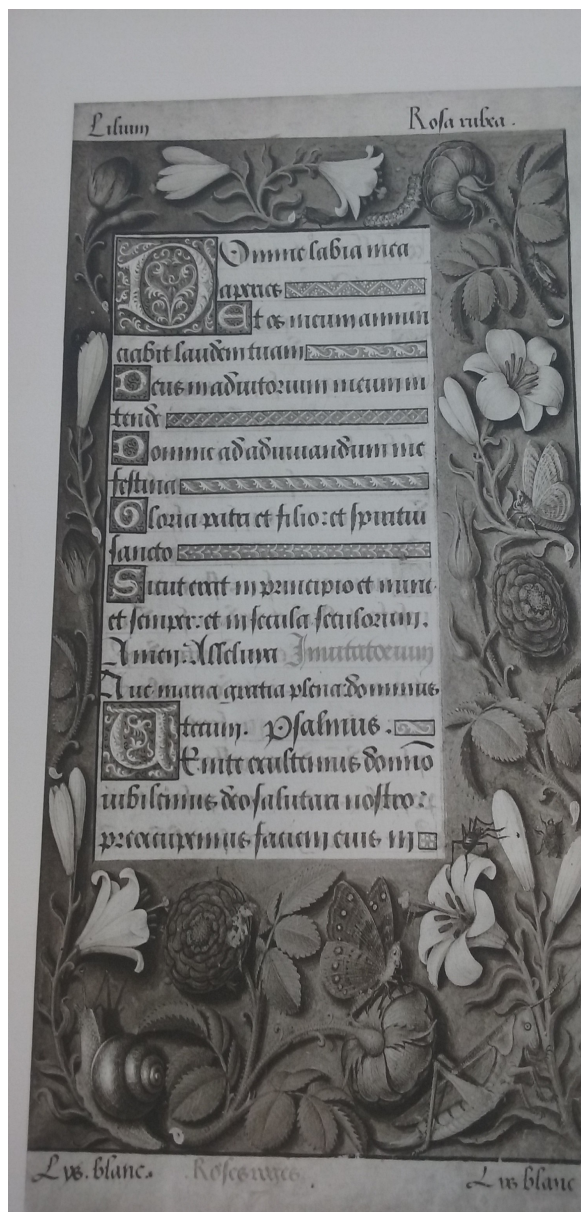 Lilium
Rosa rubea.
Domine labia mea
aperies
Et os meum annun
ciabit laudem tuam
Deus in adiutorium meum in
tende
Domine ad adiuuandum me
festina
Gloria patri et filio: et spiritui
sancto
Sicut erat in principio et nunc
et semper: et in secula seculorum.
Amen. Alleluya Inuitatorium
Aue maria gratia plena: dominus
tecum. Psalmus.
Uenite exultemus domino
iubilemus deo salutari nostro:
preoccupemus faciem eius in
Lys. blanc.
Roses rouges.
Lys blanc